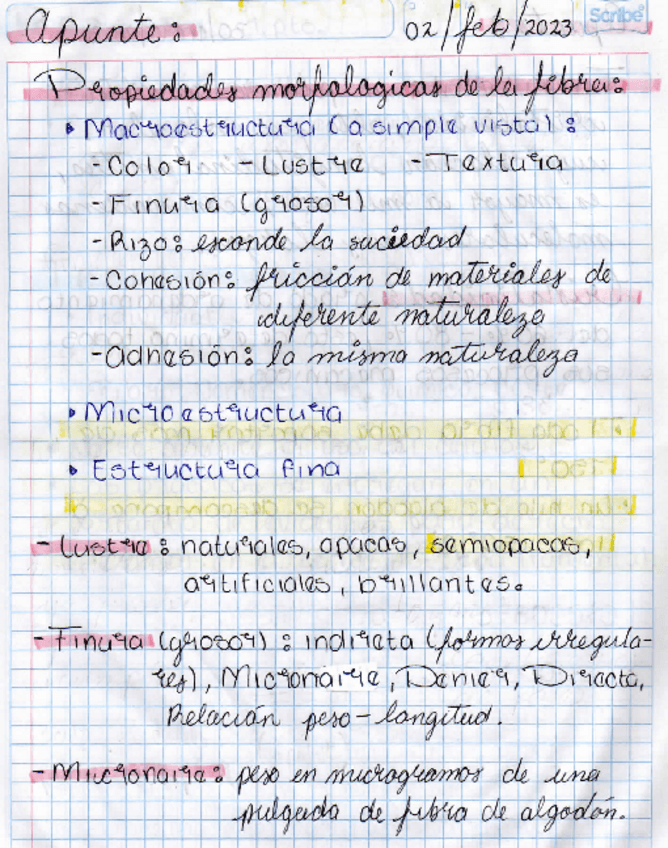 Apunte: 02/feb/2023 Scribe
Propiedades morfologicas de la fibra:
• Macroestructura (a simple vista):
- Color - Lustre - Textura
- Finura (grosor)
- Rizo: esconde la suciedad
- Cohesión: fricción de materiales de
diferente naturaleza
- Adhesión: la misma naturaleza
• Microestructura
• Estructura fina
- Lustre: naturales, opacas, semiopacas,
artificiales, brillantes.
- Finura (grosor): indirecta (formas irregula-
res), Micronaire, Denier, Directa,
Relación peso-longitud.
- Micronaire: peso en microgramos de una
pulgada de fibra de algodón.